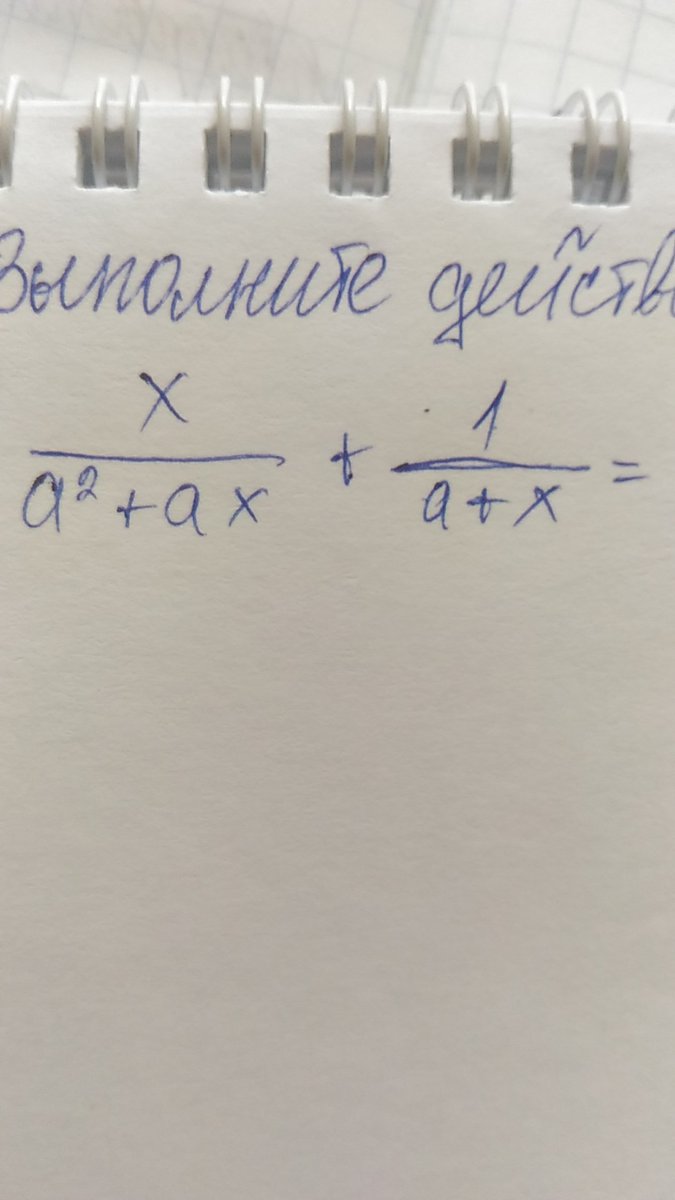 Выполните действ
x/(a²+ax) + 1/(a+x) =